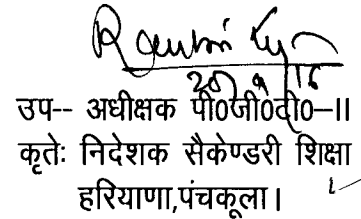 20/9/16
उप-- अधीक्षक पी0जी0टी0--II
कृतेः निदेशक सैकेण्डरी शिक्षा
हरियाणा,पंचकूला।